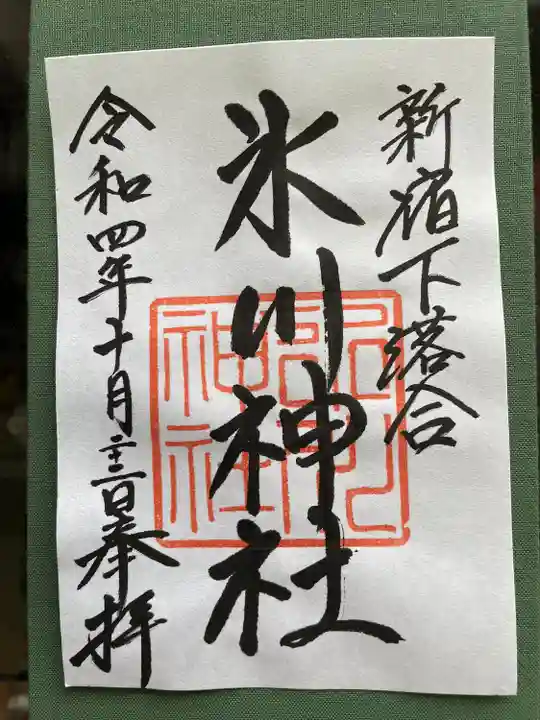 新宿下落合
氷川神社
令和四年十月二十三日奉拝
氷川神社